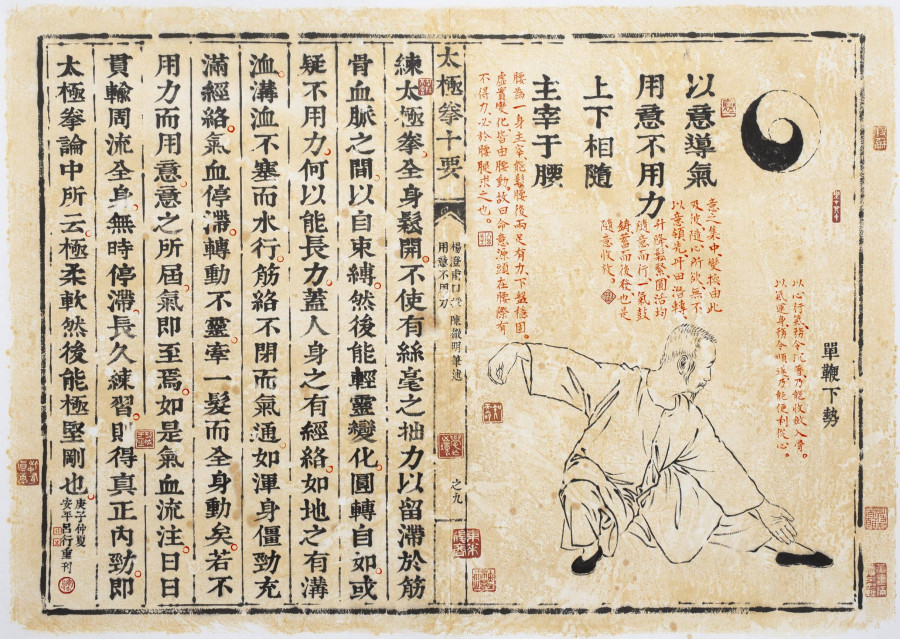 以意導氣
用意不用力
上下相隨
主宰于腰
單鞭下勢
以心行氣務令沉着乃能收斂入骨。
以氣運身務令順遂乃能便利從心。
意之集中變換由此
及彼隨心所欲無不
以意領先開回潛轉
升降鬆緊圓活均
隨意而行一氣鼓
鑄蓄而後發也是
隨意收放。
腰為一身主宰能鬆腰後兩足有力下盤穩固。
虛實變化皆由腰動故曰命意源頭在腰際有
不得力必於腰腿求之也。
太極拳十要
楊澄甫口授 陳微明筆述
用意不用力
之九
練太極拳全身鬆開不使有絲毫之拙力以留滯於筋
骨血脈之間以自束縛然後能輕靈變化圓轉自如或
疑不用力何以能長力蓋人身之有經絡如地之有溝
洫溝洫不塞而水行筋絡不閉而氣通如渾身僵勁充
滿經絡氣血停滯轉動不靈牽一髮而全身動矣若不
用力而用意意之所屆氣即至焉如是氣血流注日日
貫輸周流全身無時停滯長久練習則得真正內勁即
太極拳論中所云極柔軟然後能極堅剛也
庚子仲夏
安平呂行重刊